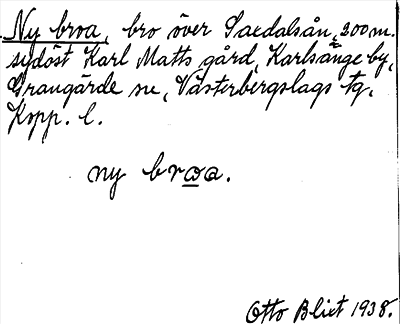 Ny broa, bro över Saxdalsån, 200 m.
sydöst Karl Matts gård, Karlsänge by,
Grangärde sn, Västerbergslags tg,
Kopp. l.
ny broa.
Otto Blixt 1938.